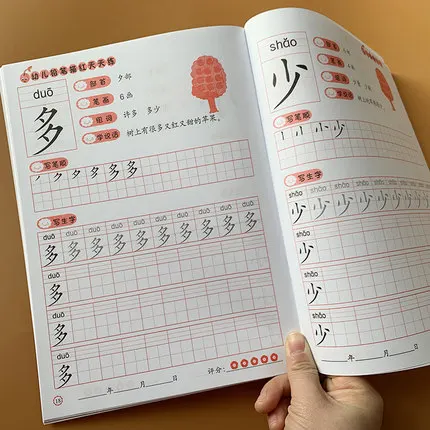 幼儿铅笔描红天天练
duō
多
部首 夕部
笔画 6画
组词 许多 多少
学说话 树上有很多又红又甜的苹果。
写笔顺
多
写生字
duō duō duō duō duō duō duō duō duō duō
多 多 多 多 多 多 多 多 多 多
duō
多
duō
多
duō
多
年 月 日 评分:
18
shǎo
少
部首
笔画
组词
学说话
写笔顺
少
写生字
shǎo
少 少 少 少 少 少 少
shǎo
少
shǎo
少
shǎo
少
年 月 日